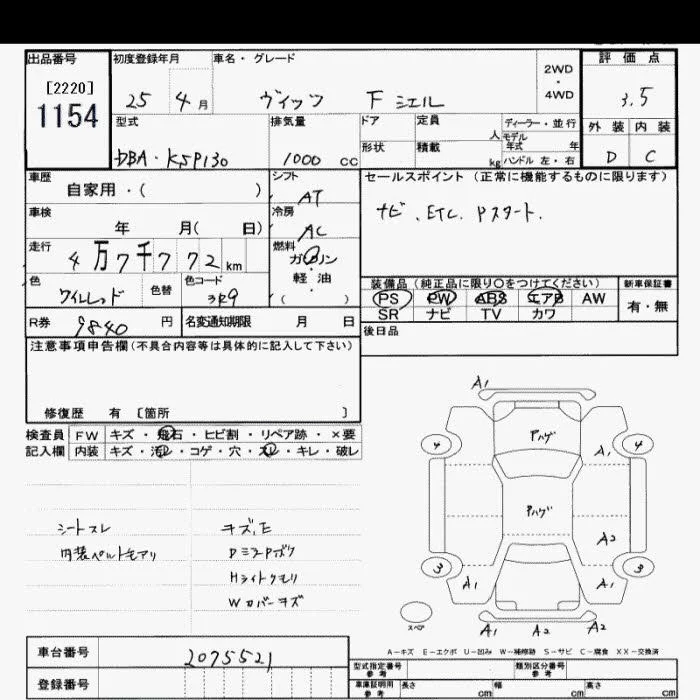 出品番号
[2220]
1154
初度登録年月
25 4 月
車名・グレード
ヴィッツ F シエル
2WD
・
4WD
評価点
3.5
外装 内装
D C
型式
DBA・KSP130
排気量
1000 cc
ドア
形状
定員
人
積載
kg
ディーラー・並行
モデル
年式 年
ハンドル 左・右
車歴
自家用・( )
シフト
AT
車検
年 月( 日)
冷房
AC
走行
4万7千772 km
燃料
ガソリン
・
軽油
( )
色
ワイルレッド
色替
色コード
3R9
R券
9840 円
名変通知期限 月 日
セールスポイント (正常に機能するものに限ります)
ナビ、ETC、Pスタート.
装備品(純正品に限り〇をつけてください)
PS PW ABS エアB AW
SR ナビ TV カワ
新車保証書
有・無
後日品
注意事項申告欄(不具合内容等は具体的に記入して下さい)
修復歴 有 [箇所 ]
検査員
記入欄
FW キズ・飛石・ヒビ割・リペア跡・×要
内装 キズ・汚レ・コゲ・穴・スレ・キレ・破レ
シートスレ
内装ペルトモアリ
キズ,E
DミラーPボケ
Hライトクモリ
Wカバーキズ
A1
4 Pハゲ 4
A1
Pハゲ
A2
3 3
A1 A1
スペア
A1 A2 A2
A-キズ E-エクボ U-凹み W-補修跡 S-サビ C-腐食 XX-交換済
車台番号
2075521
登録番号
型式指定番号
参考
類別区分番号
参考
車庫証明用
参考
長さ cm
幅 cm
高さ cm